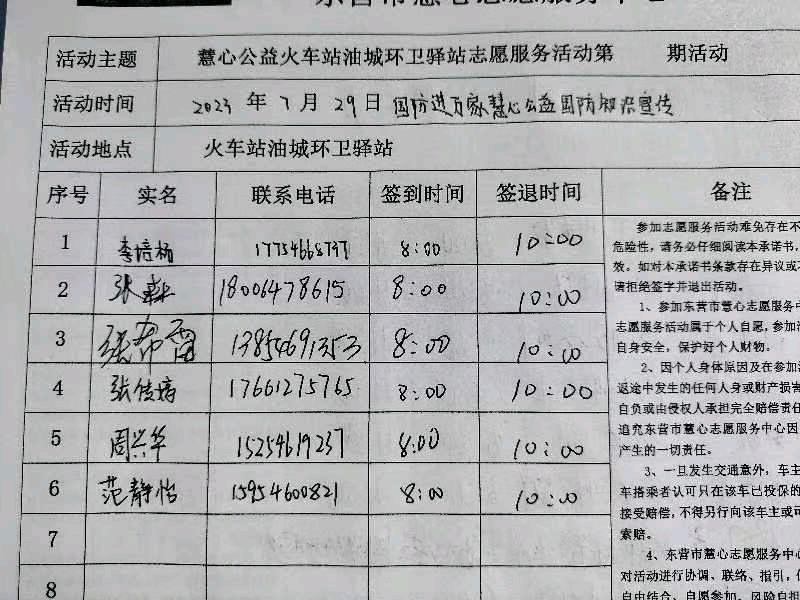 活动主题 慧心公益火车站油城环卫驿站志愿服务活动第 期活动
活动时间 2023 年 7 月 29 日 国防进万家慧心公益国防知识宣传
活动地点 火车站油城环卫驿站
序号 实名 联系电话 签到时间 签退时间 备注
1 李培杨 17754668797 8:00 10:00
2 张霖 18006478615 8:00 10:00
3 张希雷 13854691353 8:00 10:00
4 张传 17661275765 8:00 10:00
5 周兴华 15254619237 8:00 10:00
6 范静怡 15954600821 8:00 10:00
7
8
参加志愿服务活动难免存在不
危险性，请务必仔细阅读本承诺书，
效。如对本承诺书条款存在异议或不
请拒绝签字并退出活动。
1、参加东营市慧心志愿服务中
志愿服务活动属于个人自愿，参加活
自身安全，保护好个人财物。
2、因个人身体原因及在参加活
返途中发生的任何人身或财产损害
自负或由侵权人承担完全赔偿责任
追究东营市慧心志愿服务中心因
产生的一切责任。
3、一旦发生交通意外，车主
车搭乘者认可只在该车已投保的
接受赔偿，不得另行向该车主或司
索赔。
4、东营市慧心志愿服务中心
对活动进行协调、联络、指引，但
自由结合、自愿参加、风险自担